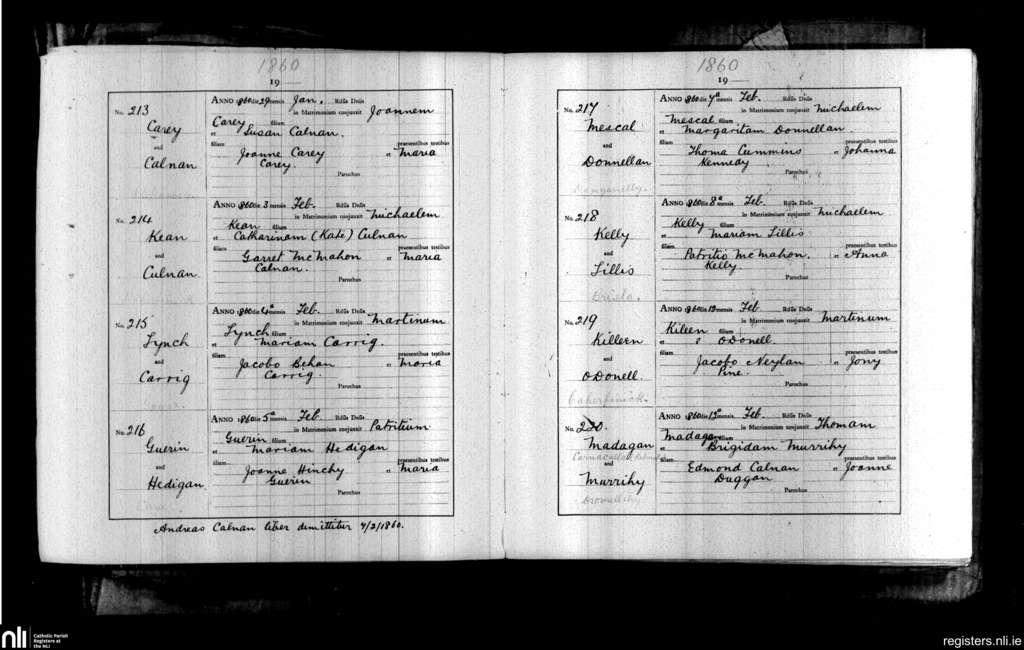 1860
19
No. 213
Carey
and
Calnan
Anno 1860 die 29 mensis Jan. Rdus Dnus
in Matrimonium conjunxit Joannem
Carey filium
et Susan Calnan.
filiam praesentibus testibus
Joanne Carey et Maria
Carey.
Parochus
No. 214
Kean
and
Culnan
Anno 1860 die 3 mensis Feb. Rdus Dnus
in Matrimonium conjunxit Michaelem
Kean filium
et Catharinam (Kate) Culnan
filiam praesentibus testibus
Garret McMahon et Maria
Calnan.
Parochus
No. 215
Lynch
and
Carrig
Anno 1860 die 4a mensis Feb. Rdus Dnus
in Matrimonium conjunxit Martinum
Lynch filium
et Mariam Carrig.
filiam praesentibus testibus
Jacobo Behan et Maria
Carrig.
Parochus
No. 216
Guerin
and
Hedigan
Anno 1860 die 5a mensis Feb. Rdus Dnus
in Matrimonium conjunxit Patritium
Guerin filium
et Mariam Hedigan
filiam praesentibus testibus
Joanne Hinchy et Maria
Guerin
Parochus
Andreas Calnan liber dimittitur 4/2/1860.
1860
19
No. 217
Mescal
and
Donnellan
Anno 1860 die 7a mensis Feb. Rdus Dnus
in Matrimonium conjunxit Michaelem
Mescal filium
et Margaritam Donnellan.
filiam praesentibus testibus
Thoma Cummins et Johanna
Kennedy
Parochus
No. 218
Kelly
and
Lillis
Anno 1860 die 8a mensis Feb. Rdus Dnus
in Matrimonium conjunxit Michaelem
Kelly filium
et Mariam Lillis
filiam praesentibus testibus
Patritio McMahon. et Anna
Kelly.
Parochus
No. 219
Killeen
and
ODonell.
Caherfinick.
Anno 1860 die 12a mensis Feb Rdus Dnus
in Matrimonium conjunxit Martinum
Kileen filium
et ? ODonell.
filiam praesentibus testibus
Jacobo Neylan et Jony
Pine.
Parochus
No. 220.
Madagan
and
Murrihy
Anno 1860 die 12a mensis Feb. Rdus Dnus
in Matrimonium conjunxit Thomam
Madagan filium
et Brigidam Murrihy
filiam praesentibus testibus
Edmond Calnan et Joanne
Duggan
Parochus
nli
Catholic Parish
Registers at
the NLI
registers.nli.ie